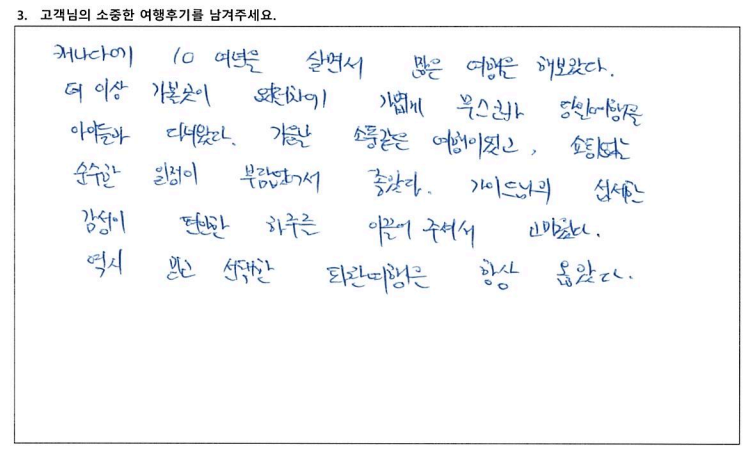 3. 고객님의 소중한 여행후기를 남겨주세요.
캐나다에 10 여년을 살면서 많은 여행을 해보았다.
더 이상 가볼곳이 가볍게 무스코카 당일여행을
아이들과 다녀왔다. 가을날 소풍같은 여행이었고, 쇼핑없는
순수한 일정이 부담없어서 좋았다. 가이드님의 섬세한
감성이 편안한 하루를 이끌어 주셔서 고마웠다.
역시 믿고 선택한 파란여행은 항상 옳았다.